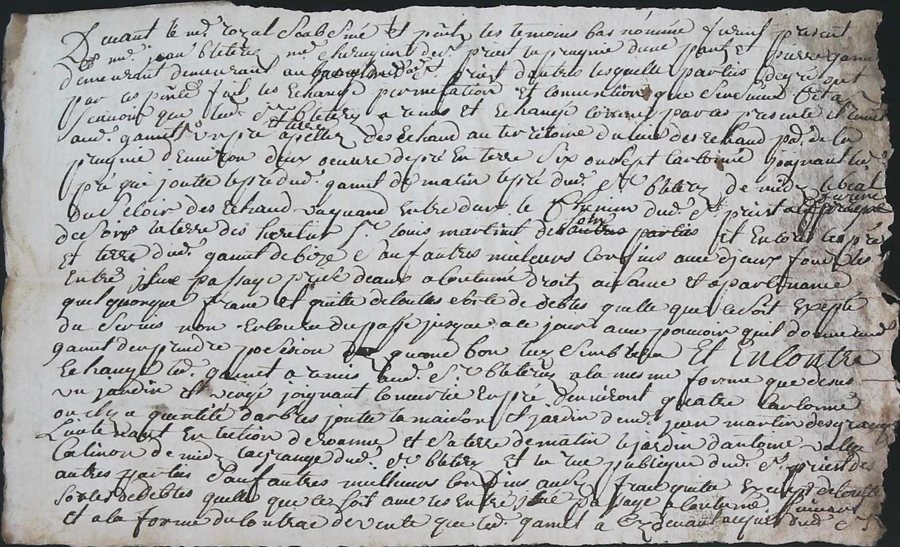 Devant le no.re royal Soubsiné et puis les temoins bas nômmé furent present
me. jean bleterÿ me. chirurgint du. priest la prugne dune part et pierre gamet
demeurant demeurant au du. priest d'autre lesquelle parties de gré ont
par ces pñtes fait les Echange permutation et convention que Sensuive Cest a
scavoir que led. Sr. bleterÿ a remis et Echangé comme par ces presente il remet
aud. gamet un pré appellé des Echaud au territoire du lieu des Echaud psse. de la
prugnie d'environ deux oeuvre de pré En terre Six ou Sept cartonné joignant led.
pré qui joutte le pré dud. gamet de matin le pré dud. Sr. bleterÿ de midy le bial
du Cloir des Echaud vaquand Entre deux le Chemin du. St. priest a la prugne
de soir la terre des Sr. louis martinet de autres parties et Encore le pré
et terre dud. gamet de bize Sauf autres meilleurs Confins avec Ses aux fond les
Entré issüe passage prise deaux a Coutumé droit aisance et apartenance
quelquonque franc et quitte de toutes sorte de debtes quelle que ce soit Excepté
du Servis non Encouru du passé jusque a ce jour avec pouvoir quil donne aud.
gamet d'en prendre posession quand bon luy Semblera Et En Contre
Echange led. gamet a remis aud. Sr. bleterÿ a la mesme forme que desus
un jardin et verger joignant Convertie En pré d'environ quatre Cartonné
ou il y a quentité darbres joutte la maison et jardin de me. jean martin desgranges
Lieutenant En Lection de roanne et Sa terre de matin le jardin dantoine
Calinon de midy la grange dud. Sr. bleterÿ et la rue publique dud. St. priest des
autres parties Sauf autres meilleurs Confins aussy franc quitte Exempt de toutte
Sortes de debtes quelle que ce soit avec les Entré issüe passage a Coutumé suivant
et a la forme du Contrac de vente que led. gamet a Cy devant acquis dud. Sr.